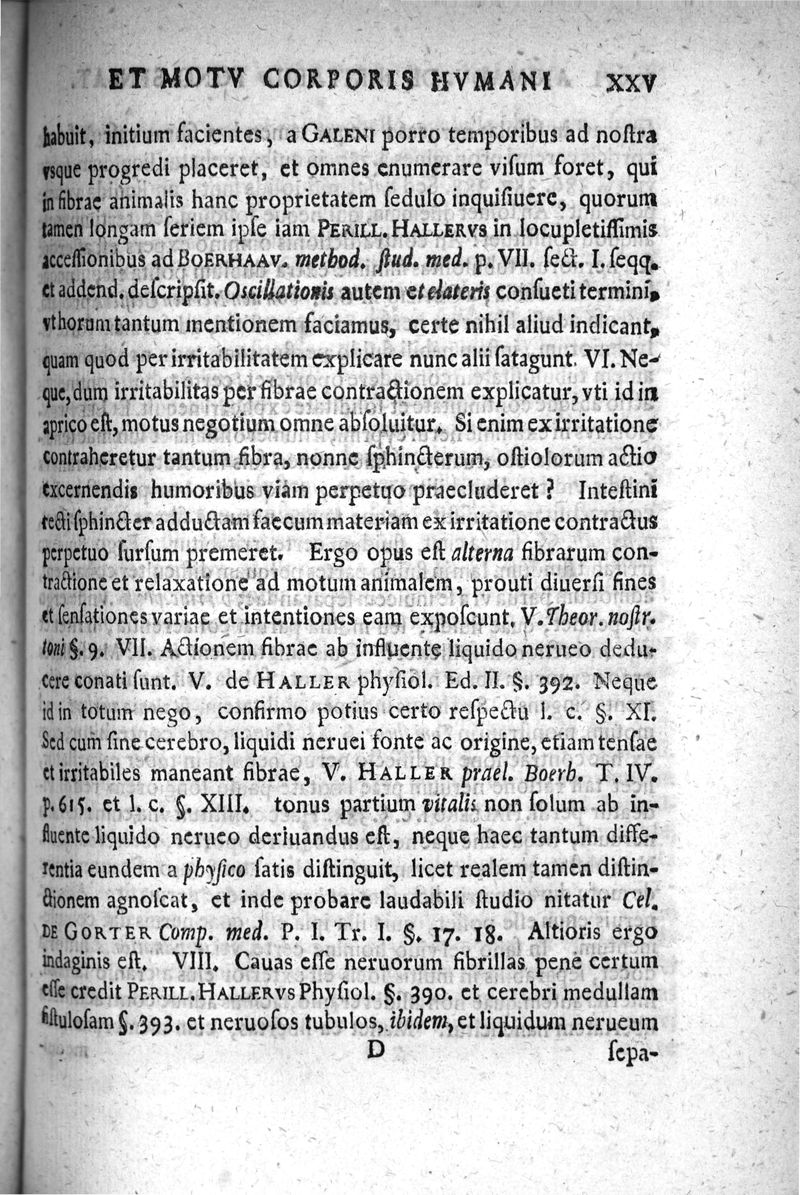 ET MOTV CORPORIS HVMANI XXV
habuit, initium facientes, a GALENI porro temporibus ad noſtra
vsque progredi placeret, et omnes enumerare viſum foret, qui
in fibrae animalis hanc proprietatem ſedulo inquiſiuere, quorum
tamen longam ſeriem ipſe iam PERILL. HALLERVS in locupletiſſimis
acceſſionibus ad BOERHAAV. method. ſtud. med. p. VII. ſect. I. ſeqq.
et addend. deſcripſit. Oscillationis autem et elateris conſueti termini,
vt horum tantum mentionem faciamus, certe nihil aliud indicant,
quam quod per irritabilitatem explicare nunc alii ſatagunt. VI. Ne-
que, dum irritabilitas per fibrae contractionem explicatur, vti id in
aprico eſt, motus negotium omne abſoluitur. Si enim ex irritatione
contraheretur tantum fibra, nonne ſphincterum, oſtiolorum actio
excernendis humoribus viam perpetuo praecluderet? Inteſtini
recti ſphincter adductam faecum materiam ex irritatione contractus
perpetuo ſurſum premeret. Ergo opus eſt alterna fibrarum con-
tractione et relaxatione ad motum animalem, prouti diuerſi fines
et ſenſationes variae et intentiones eam expoſcunt. V. Theor. noſtr.
toni §. 9. VII. Actionem fibrae ab influente liquido nerueo dedu-
cere conati ſunt. V. de HALLER phyſiol. Ed. II. §. 392. Neque
id in totum nego, confirmo potius certo reſpectu l. c. §. XI.
Sed cum ſine cerebro, liquidi neruei fonte ac origine, etiam tenſae
et irritabiles maneant fibrae, V. HALLER prael. Boerh. T. IV.
p. 615. et l. c. §. XIII. tonus partium vitalis non ſolum ab in-
fluente liquido nerueo deriuandus eſt, neque haec tantum diffe-
rentia eundem a phyſico ſatis diſtinguit, licet realem tamen diſtin-
ctionem agnoſcat, et inde probare laudabili ſtudio nitatur Cel.
DE GORTER Comp. med. P. I. Tr. I. §. 17. 18. Altioris ergo
indaginis eſt. VIII. Cauas eſſe neruorum fibrillas pene certum
eſſe credit PERILL. HALLERVS Phyſiol. §. 390. et cerebri medullam
fiſtuloſam §. 393. et neruoſos tubulos, ibidem, et liquidum nerueum
D ſepa-